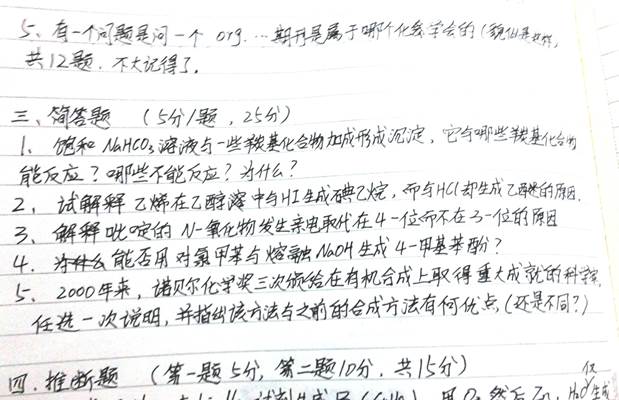 5、有一个问题是问一个 org.…期刊是属于哪个化学学会的(貌似是这样,
共12题,不大记得了。
三、简答题 (5分/题,25分)
1、饱和 NaHCO₃ 溶液与一些羰基化合物加成形成沉淀,它与哪些羰基化合物
能反应?哪些不能反应?为什么?
2、试解释乙烯在乙醇溶中与HI生成碘乙烷,而与HCl却生成乙醚的原因.
3、解释吡啶的 N-氧化物发生亲电取代在4-位而不在3-位的原因
4、能否用对氯甲苯与熔融 NaOH 生成 4-甲基苯酚?
5、2000年来,诺贝尔化学奖三次颁给在有机合成上取得重大成就的科学家,
任选一次说明,并指出该方法与之前的合成方法有何优点(还是不同?)
四、推断题 (第一题5分,第二题10分,共15分)
仅